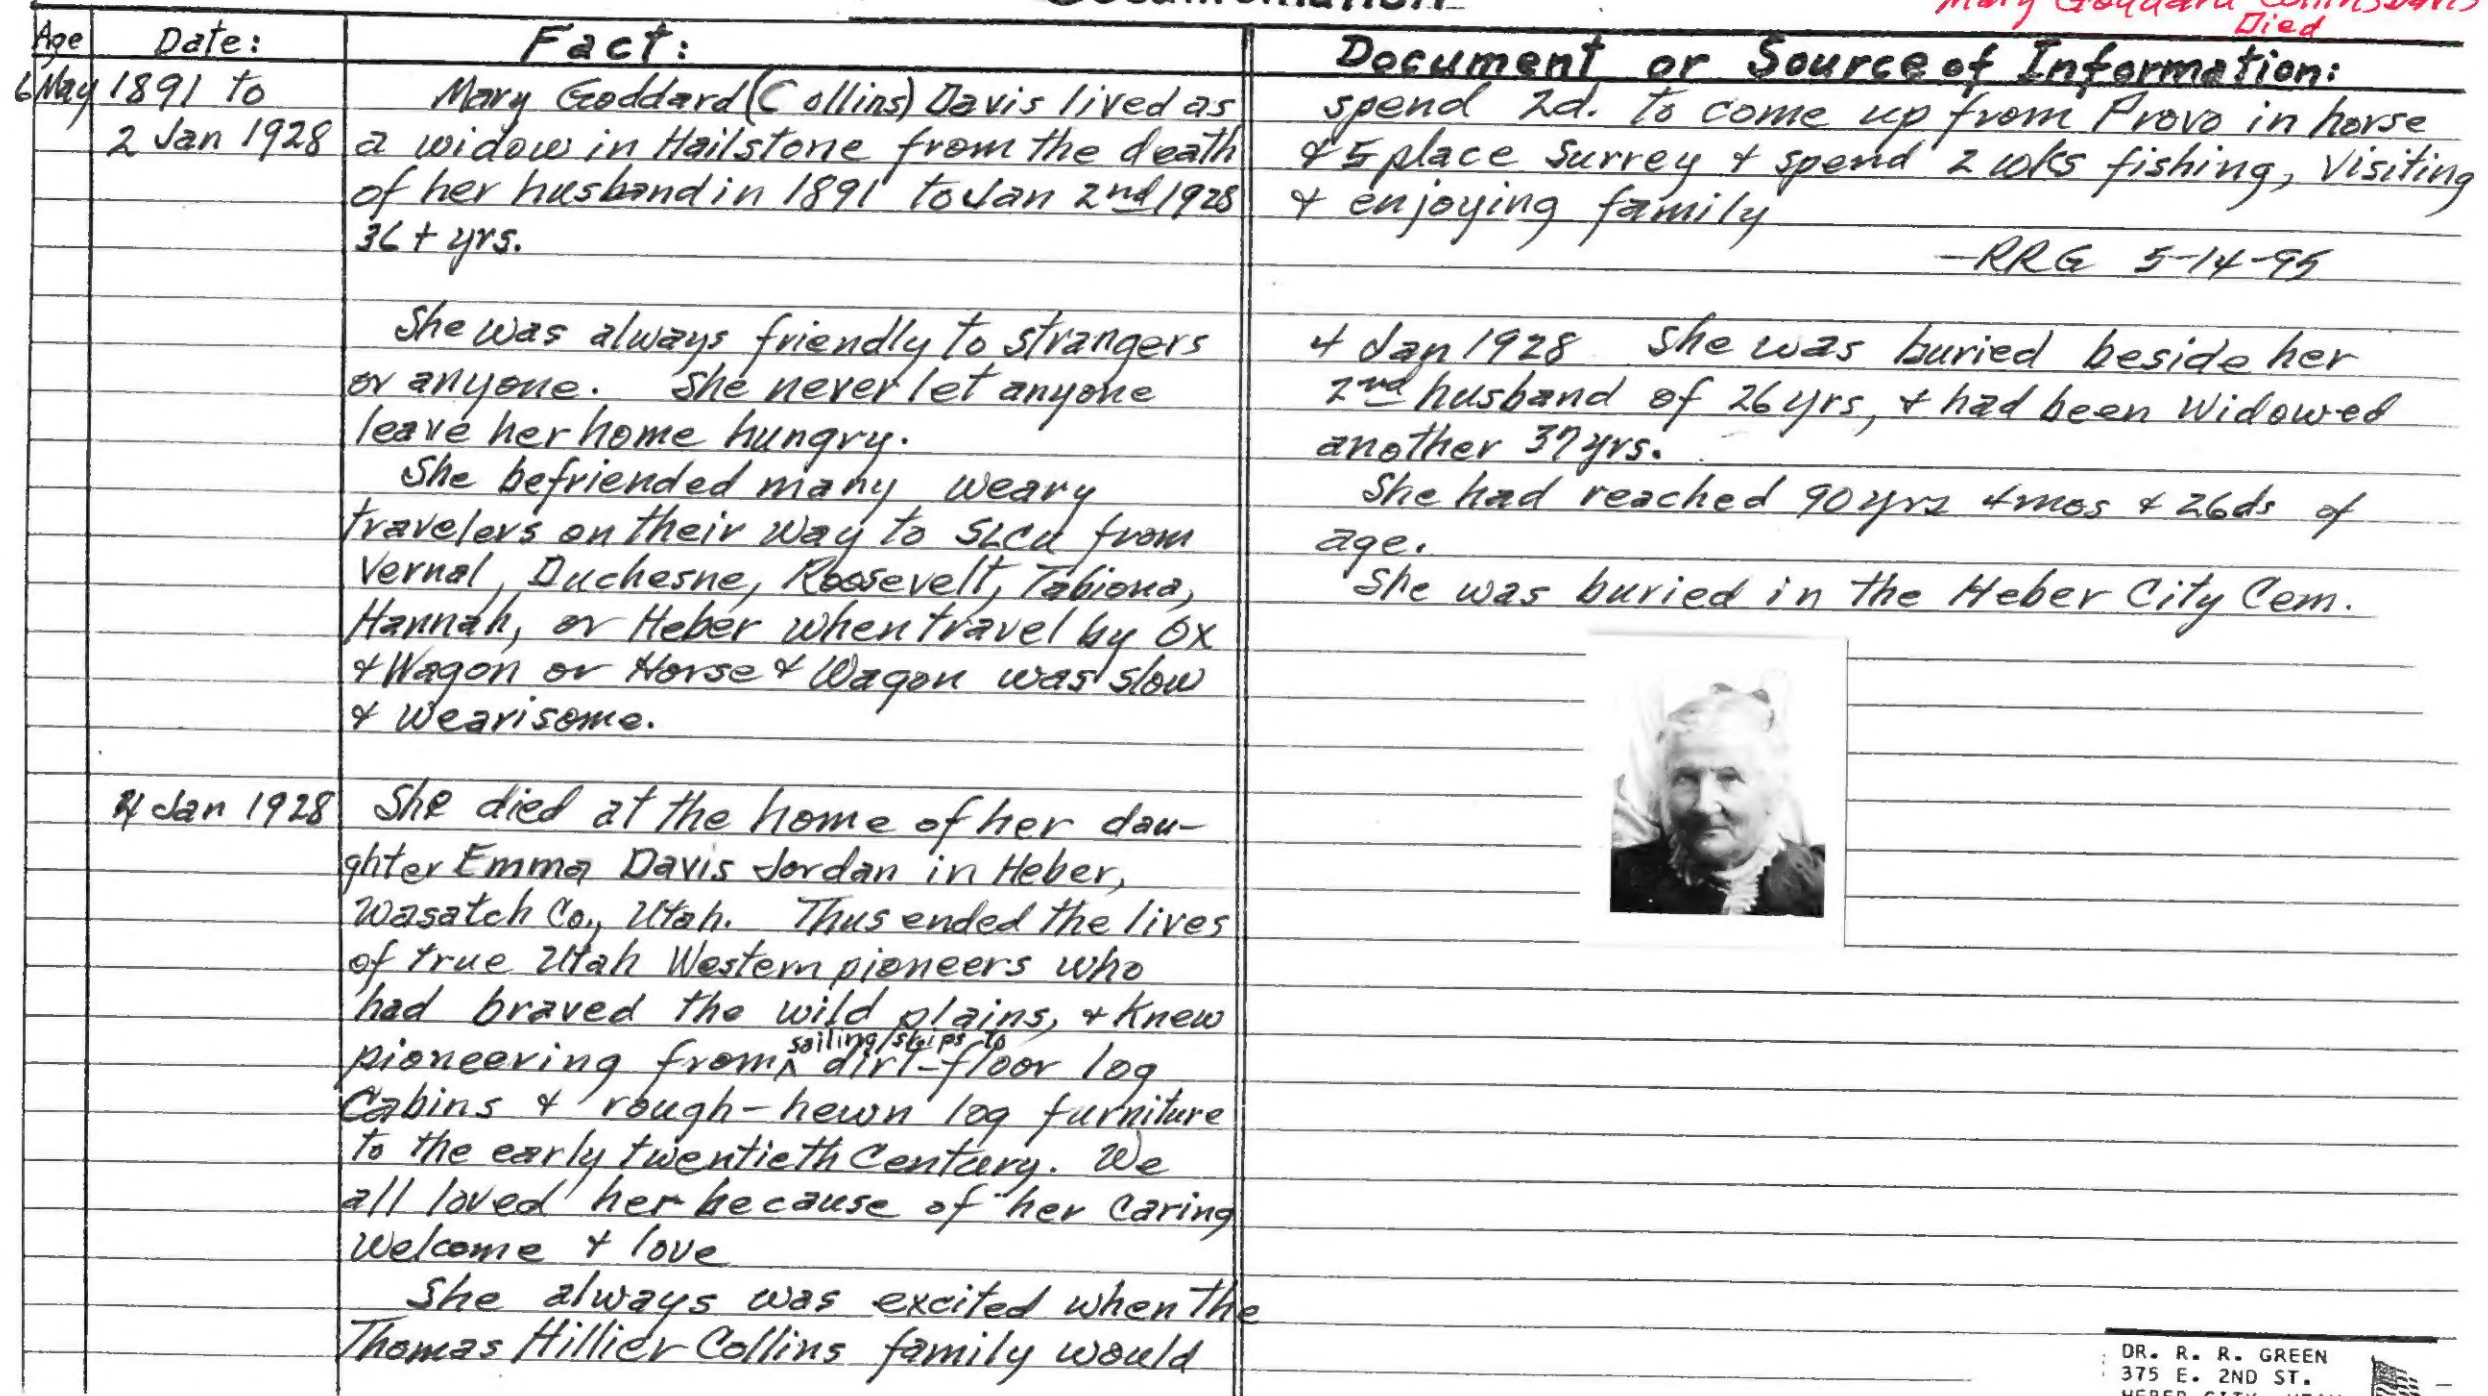 Documentation
Mary Goddard Collins Davis
Died
Age
Date:
Fact:
Document or Source of Information:
6 May 1891 to
2 Jan 1928
Mary Goddard (Collins) Davis lived as
a widow in Hailstone from the death
of her husband in 1891 to Jan 2nd 1928
36+ yrs.
She was always friendly to strangers
or anyone. She never let anyone
leave her home hungry.
She befriended many weary
travelers on their way to SLCU from
Vernal, Duchesne, Roosevelt, Tabiona,
Hannah, or Heber when travel by Ox
& Wagon or Horse & Wagon was slow
& wearisome.
4 Jan 1928
She died at the home of her dau-
ghter Emma Davis Jordan in Heber,
Wasatch Co., Utah. Thus ended the lives
of true Utah Western pioneers who
had braved the wild plains, & knew
sailing/ships to
pioneering from ^ dirt-floor log
Cabins & rough-hewn log furniture
to the early twentieth Century. We
all loved her because of her caring
welcome & love
She always was excited when the
Thomas Hillier Collins family would
spend 2d. to come up from Provo in horse
& 5 place surrey & spend 2 wks fishing, visiting
& enjoying family
—RRG 5-14-95
4 Jan 1928 She was buried beside her
2nd husband of 26 yrs, & had been widowed
another 37 yrs.
She had reached 90 yrs 4 mos & 26 ds of
age.
She was buried in the Heber City Cem.
DR. R. R. GREEN
375 E. 2ND ST.
HEBER CITY, UTAH